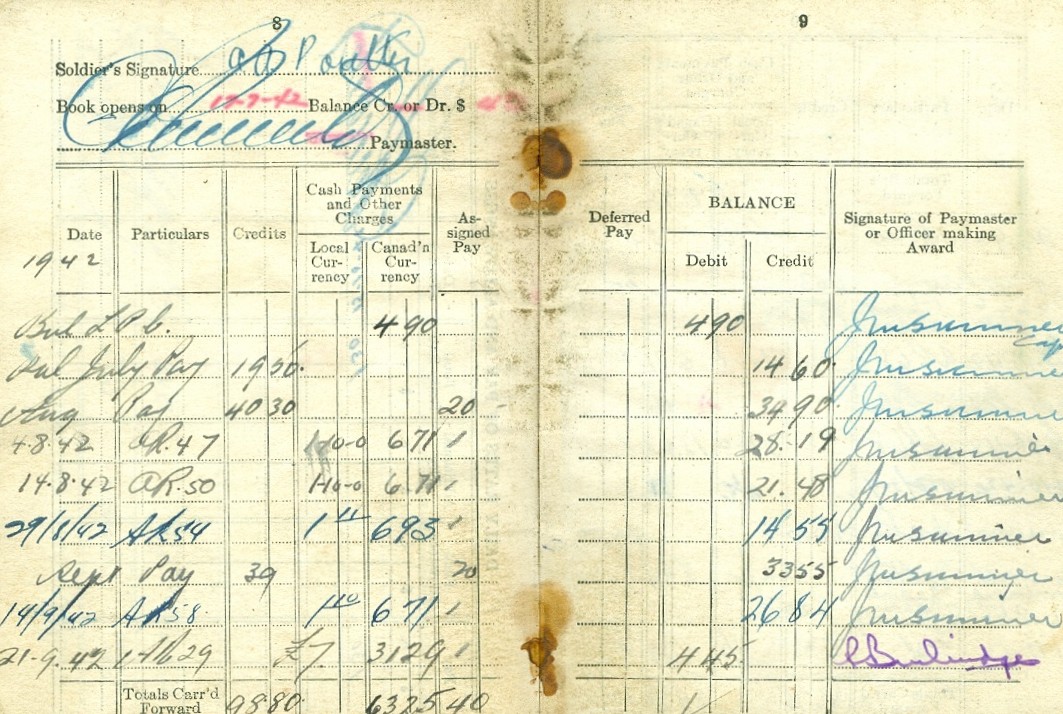 8 9
Soldier's Signature
Book opens on 17-7-42 Balance Cr. or Dr. $
Paymaster.
Date Particulars Credits Cash Payments and Other Charges Local Cur-rency Canad'n Cur-rency As-signed Pay Deferred Pay BALANCE Debit Credit Signature of Paymaster or Officer making Award
1942
Bal L.P.b. 4 90 4 90
Bal July Pay 19 50 14 60
Aug Pay 40 30 20 34 90
4.8.42 AR.47 1-10-0 6 71 28.19
14.8.42 AR.50 1-10-0 6 71 21.48
29/8/42 AR54 1 11 6 93 14 55
Sept Pay 39 20 33 55
14/9/42 AR58 1 10 6 71 26 84
21-9.42 29 £7 31 29 4 45
Totals Carr'd Forward 98 80 63 25 40